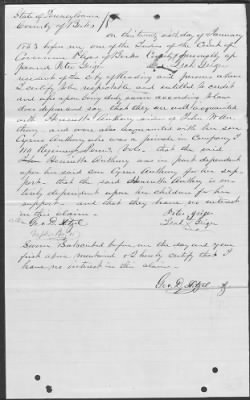 State of Pennsylvania
County of Berks } SS
on this thirty first day of January
1883 before me, one of the Judges of the Court of
Common Pleas of Berks County, personally ap
peared Peter Geiger and Leah Geiger
residents of the City of Reading and persons whom
I certify to be respectable and entitled to credit
and who upon being duly sworn according to law
does depose and say, that they are well acquainted
with Henrietta Anthony widow of Peter N. An
thony, and were also acquainted with her son
Cyrus Anthony who was a private in Company
Regiment Penns. Vols., that the said
Henrietta Anthony was in part dependent
upon her said son Cyrus Anthony for her sup-
port, that the said Henrietta Anthony is en-
tirely dependent upon her children for her
support and that they have no interest
in this claim.
Geo. D. Peter Geiger
Leah Geiger
Sworn & Subscribed before me the day and year
first above mentioned & I hereby certify that I
have no interest in this claim.
Geo. D.